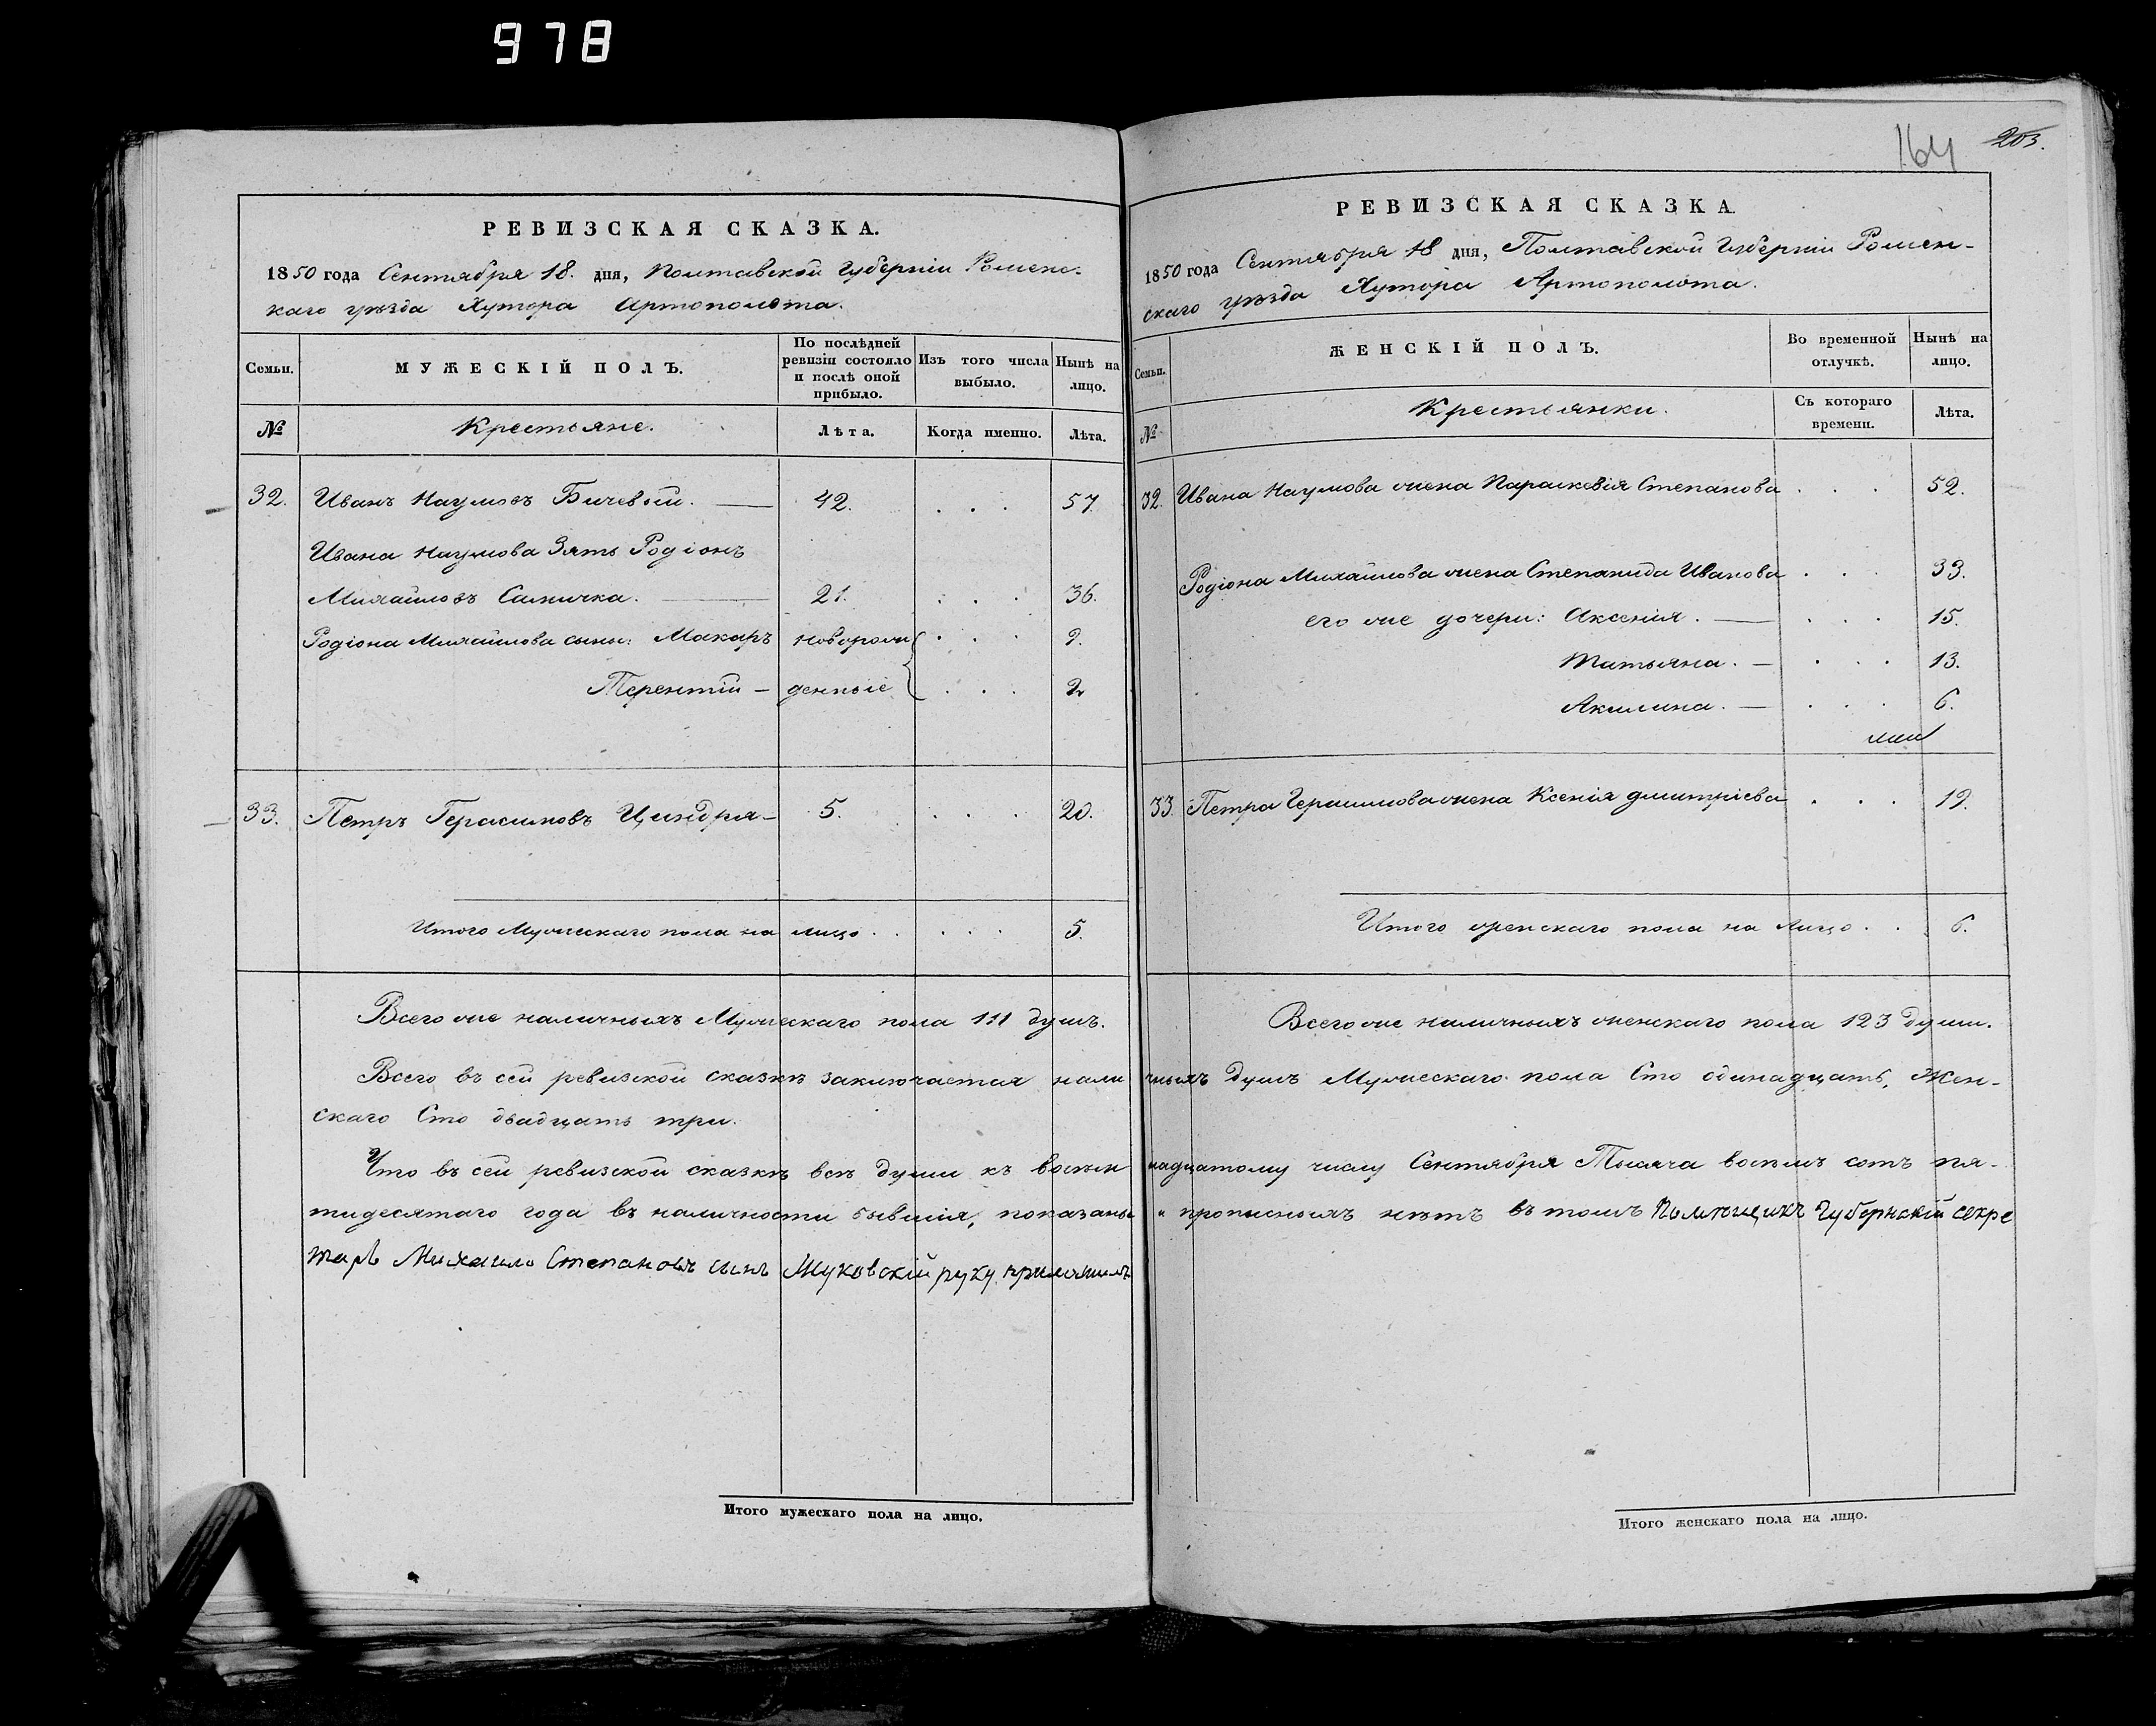 978
164 203.
РЕВИЗСКАЯ СКАЗКА.
1850 года Сентября 18. дня, Полтавской Губерніи Роменс-
каго уѣзда Хутора Артополота.
Семьи. МУЖЕСКІЙ ПОЛЪ. По послѣдней ревизіи состояло и послѣ оной прибыло. Изъ того числа выбыло. Нынѣ на лицо.
№ Крестьяне. Лѣта. Когда именно. Лѣта.
32. Иванъ Наумовъ Бичевой. 42. . . . 57.
Ивана Наумова Зять Родіонъ
Михайловъ Саличка. 21. . . . 36.
Родіона Михайлова сыны: Макаръ новорож . . . 9.
Терентій – денные . . . 2
33. Петръ Герасимовъ Циндря – 5. . . . 20.
Итого Мужескаго пола на лицо . . . . . 5.
Всего же наличныхъ Мужескаго пола 111 душъ.
Всего въ сей ревизской сказкѣ заключается нали
скаго Сто двадцать три.
Что въ сей ревизской сказкѣ всѣ души къ восьм
тидесятаго года въ наличности бывшія, показаны
тарь Михаило Степановъ сынъ Жуковскій руку приложилъ
Итого мужескаго пола на лицо.
РЕВИЗСКАЯ СКАЗКА.
1850 года Сентября 18 дня, Полтавской Губерніи Ромен-
скаго уѣзда Хутора Артополота.
Семьи. ЖЕНСКІЙ ПОЛЪ. Во временной отлучкѣ. Нынѣ на лицо.
№ Крестьянки. Съ котораго времени. Лѣта.
32. Ивана Наумова жена Параскевія Степанова . . . 52.
Родіона Михайлова жена Степанида Иванова . . . 33.
его же дочери: Аксенія . . . . 15.
Татьяна. – . . . 13.
Акилина. – . . . 6.
33. Петра Герасимова жена Ксенія Дмитріева . . . 19.
Итого женскаго пола на лицо . . . 6.
Всего же наличныхъ женскаго пола 123 души.
чныхъ душъ Мужескаго пола Сто одинадцать, Жен-
надцатому числу Сентября Тысяча восемь сотъ пя-
„ прописныхъ нѣтъ въ томъ Помѣщикъ Губернскій секре
Итого женскаго пола на лицо.